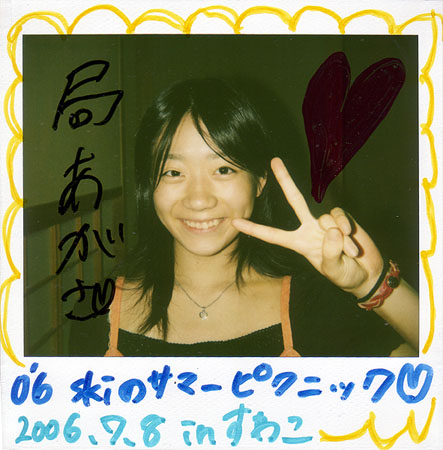 局あがさ♡
'06 のサマーピクニック♡
2006.7.8 in すわこ